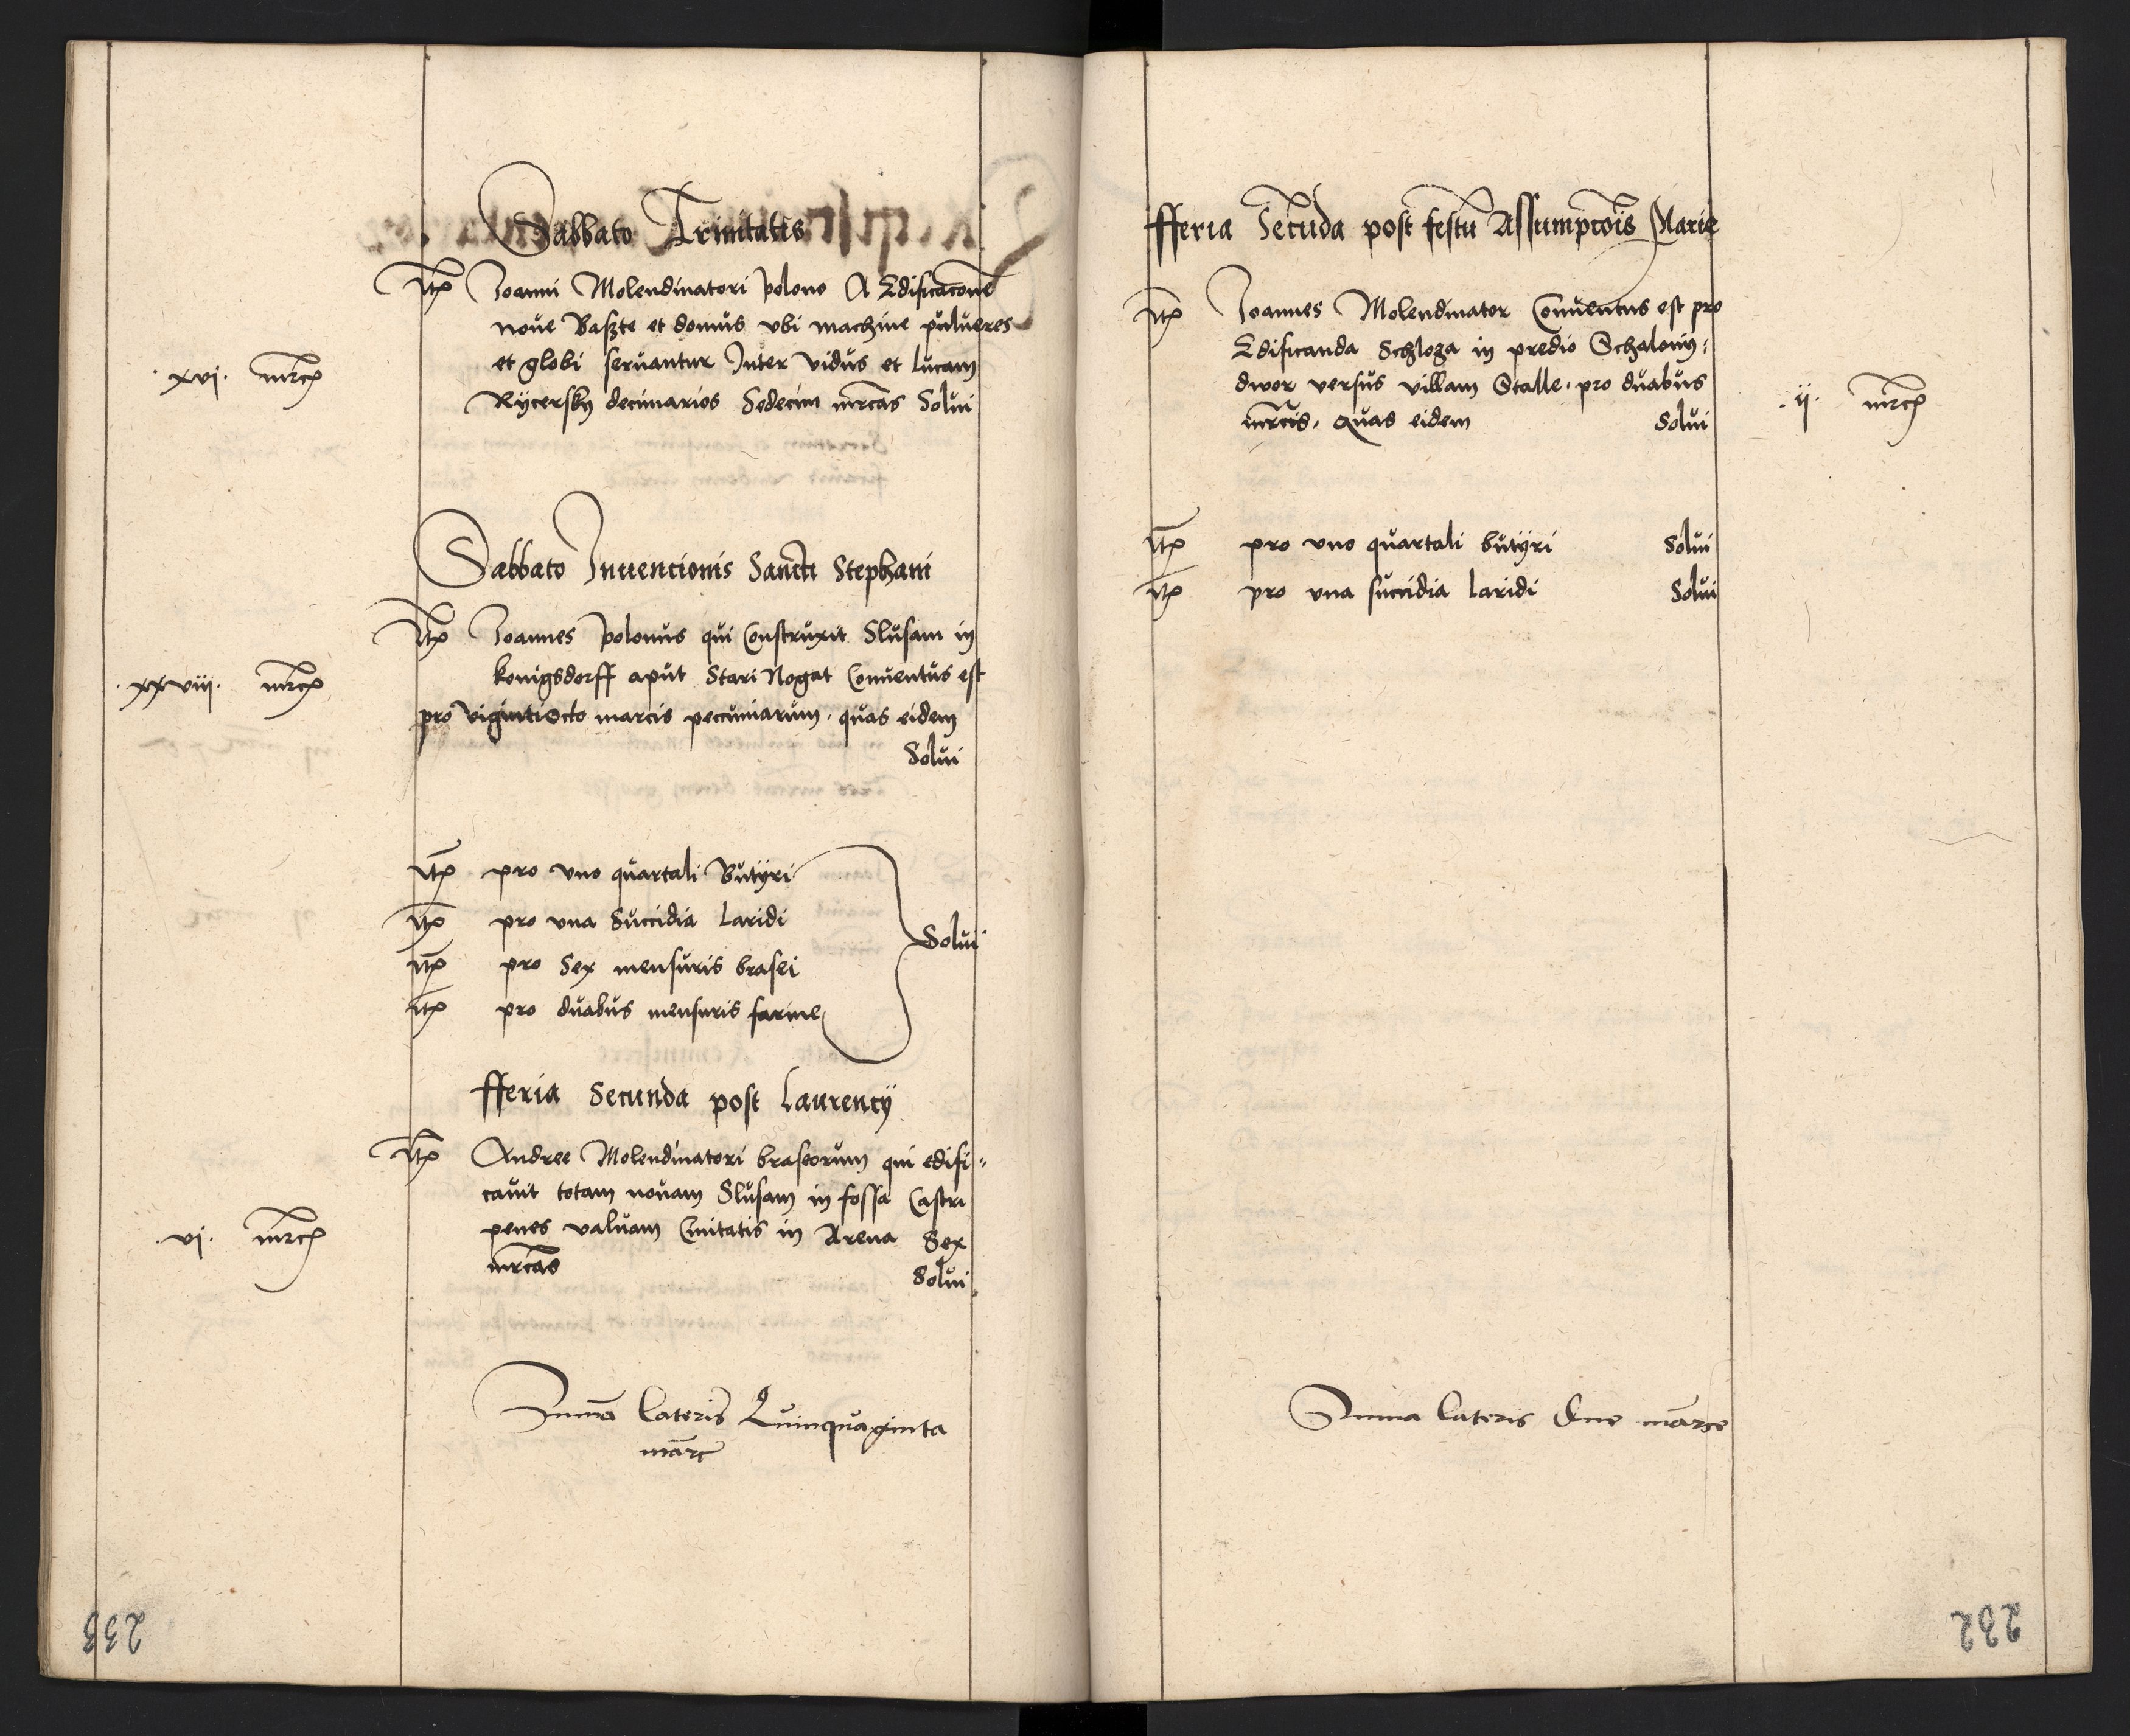 Sabbato Trinitatis
Itm Joanni Molendinatori Polono A Edificacone
noue Baszte et domus vbi machine pulueres
et globi seruantur Inter vidus et Lucam
.xvi. mrc Rycersky decimarios Sedecim mrcas Solui
Sabbato Inuencionis Sancti Stephani
Itm Joannes Polonus qui Construxit Slusam in
konigsdorff aput Stari Nogat Conuentus est
.xxviii. mrc
pro vigintiocto marcis pecuniarum, quas eidem
Solui
Itm pro vno quartali Butÿri
Itm pro vna Succidia Laridi
Solui
Itm pro Sex mensuris brasei
Itm pro duabus mensuris farine
fferia Secunda post Laurencÿ
Itm Andree Molendinatori braseorum qui edifi-
cauit totam nouam Slusam in fossa Castri
.vi. mrc penes valuam Ciuitatis in Arena Sex
mrcas Solui
Suma Lateris Quinquaginta
marc
233
fferia Secuda post festu Assumpcois Marie
Itm Joannes Molendinator Conuentus est pro
Edificanda Schloza in predio Schalony-
dwor versus villam Stalle, pro duabus
.ij. mrc
mrcis, quas eidem Solui
Itm pro vno quartali butÿri Solui
Itm pro vna succidia Laridi Solui
Suma Lateris due marce
232